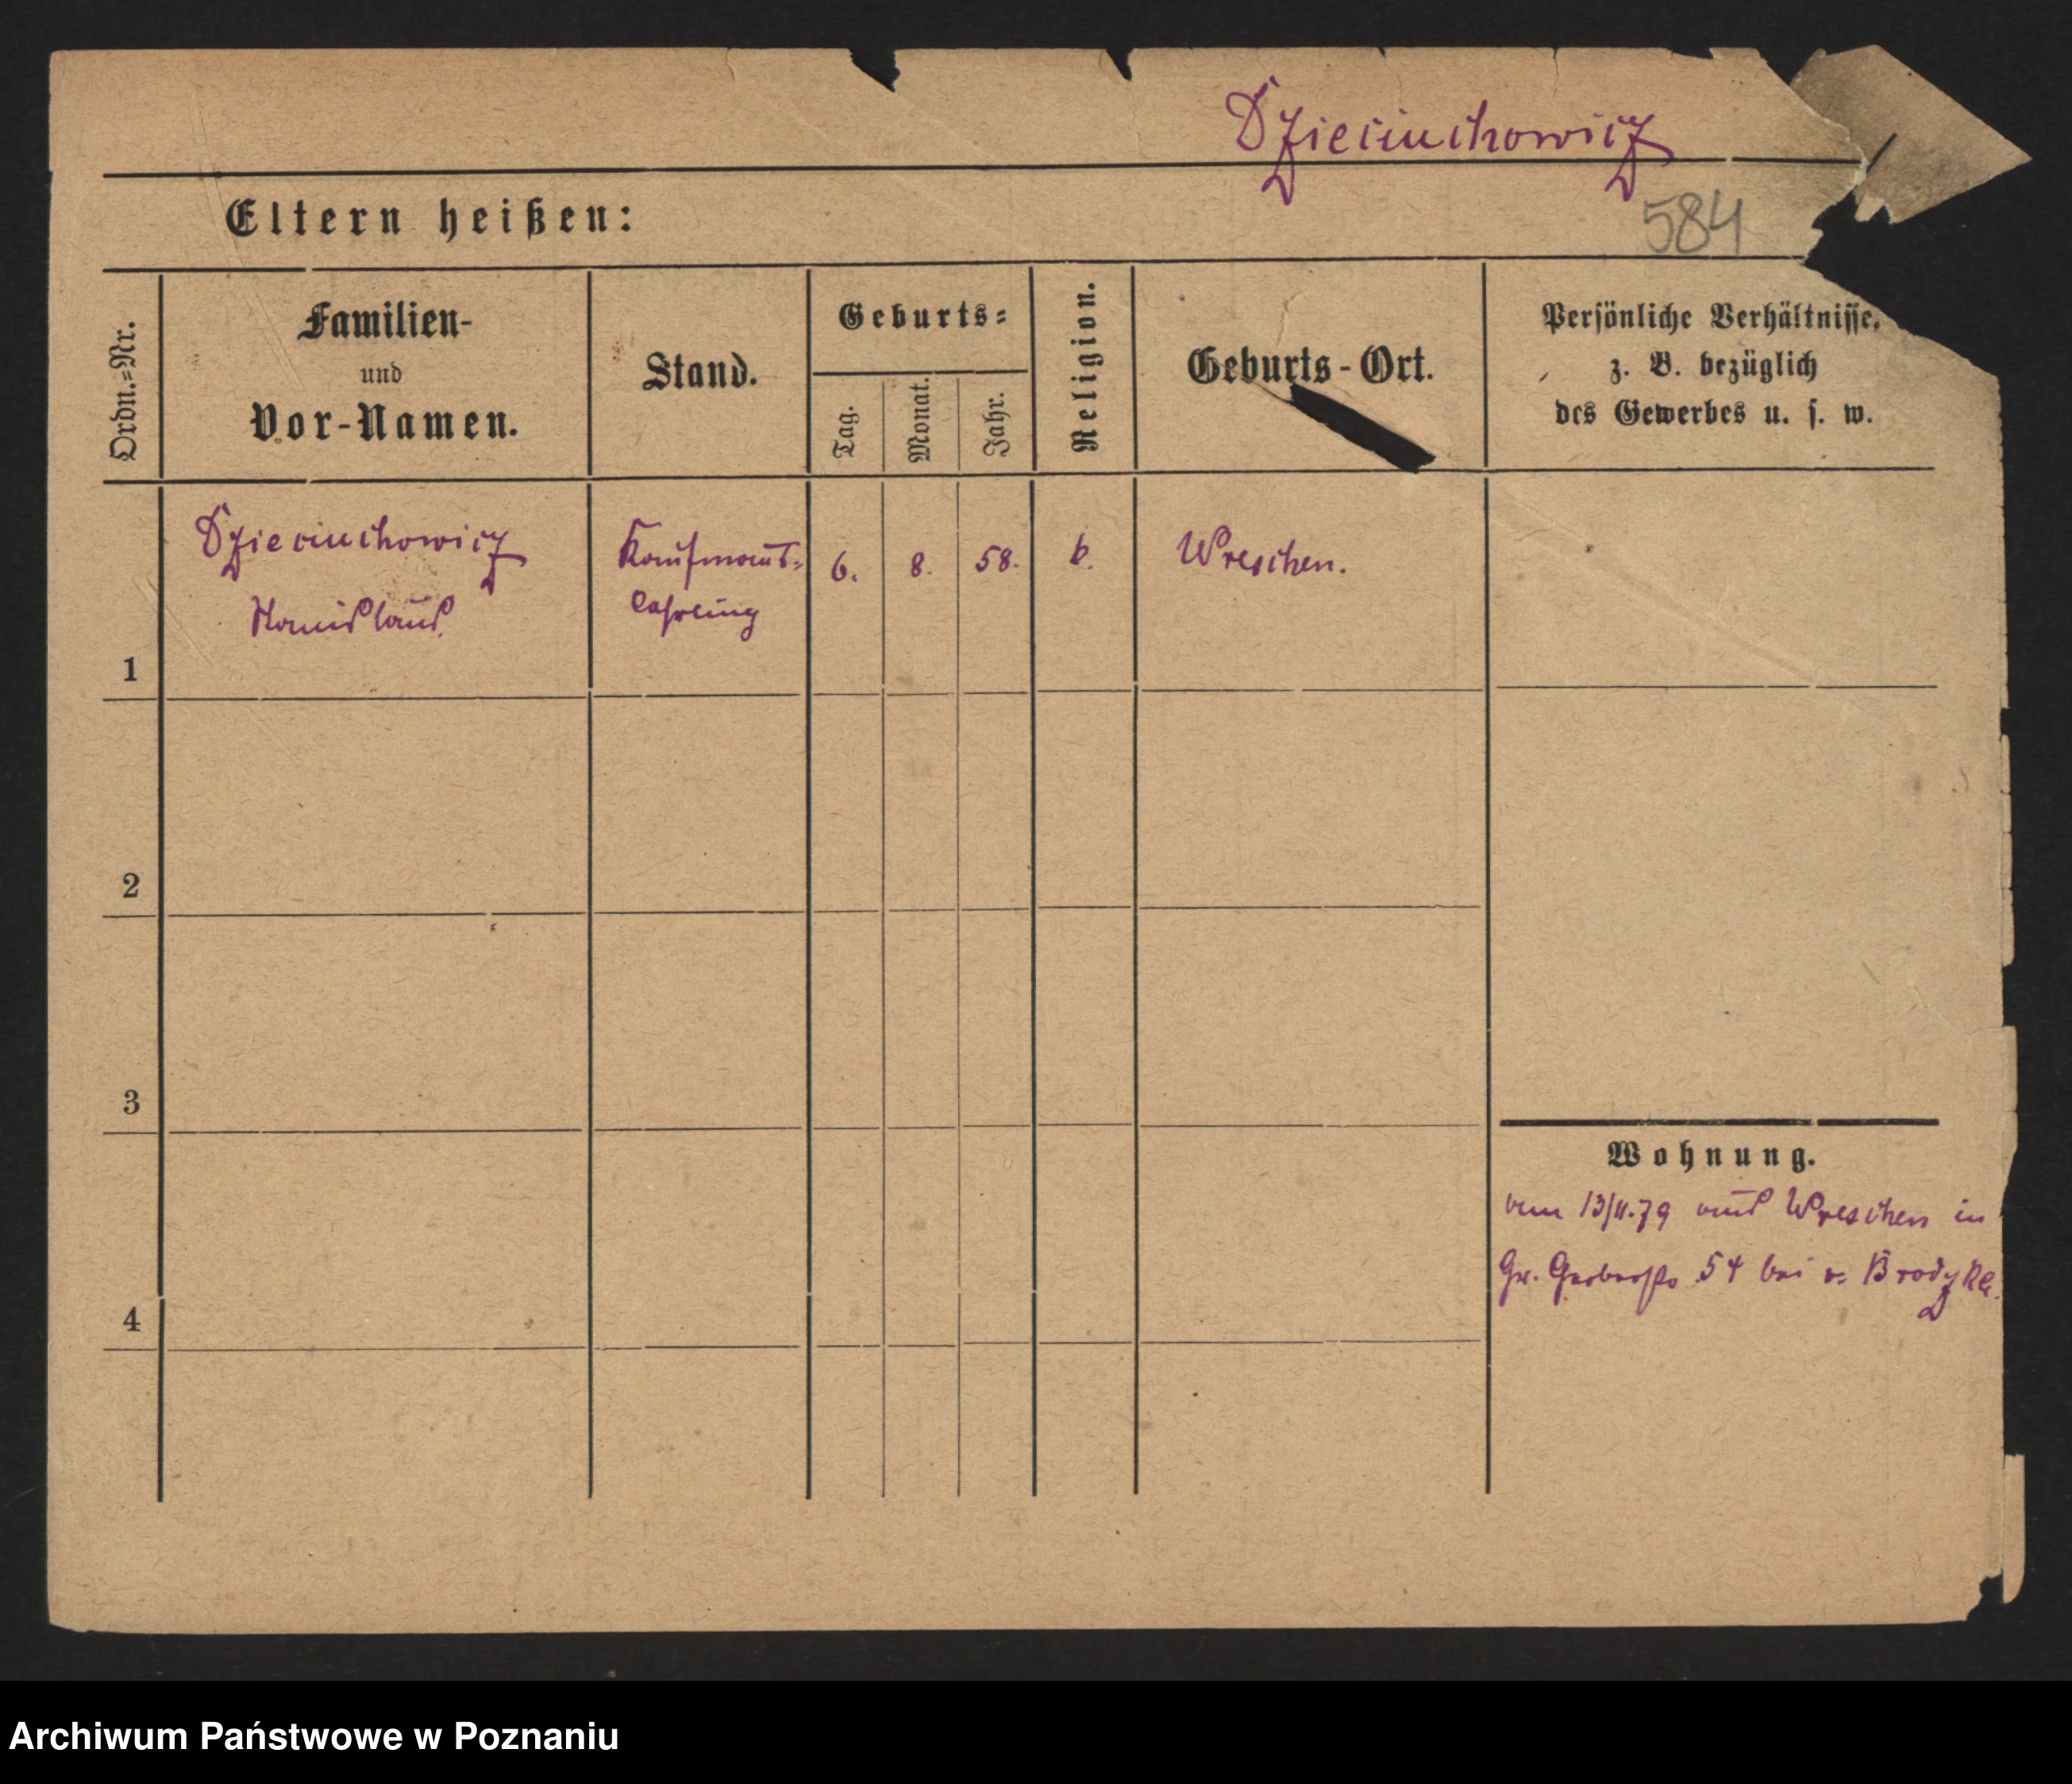 Dzieciuchowicz
584
Eltern heißen:
Ordn.=Nr.
Familien-
und
Vor-Namen.
Stand.
Geburts=
Tag.
Monat.
Jahr.
Religion.
Geburts-Ort.
Persönliche Verhältnisse,
z. B. bezüglich
des Gewerbes u. s. w.
1
Dzieciuchowicz
Stanislaus
Kaufmanns-
lehrling
6.
8.
58.
k.
Wreschen.
2
3
4
Wohnung.
13/11.79 aus Wreschen in
Gr. Gerberstr 54 bei v.
Archiwum Państwowe w Poznaniu